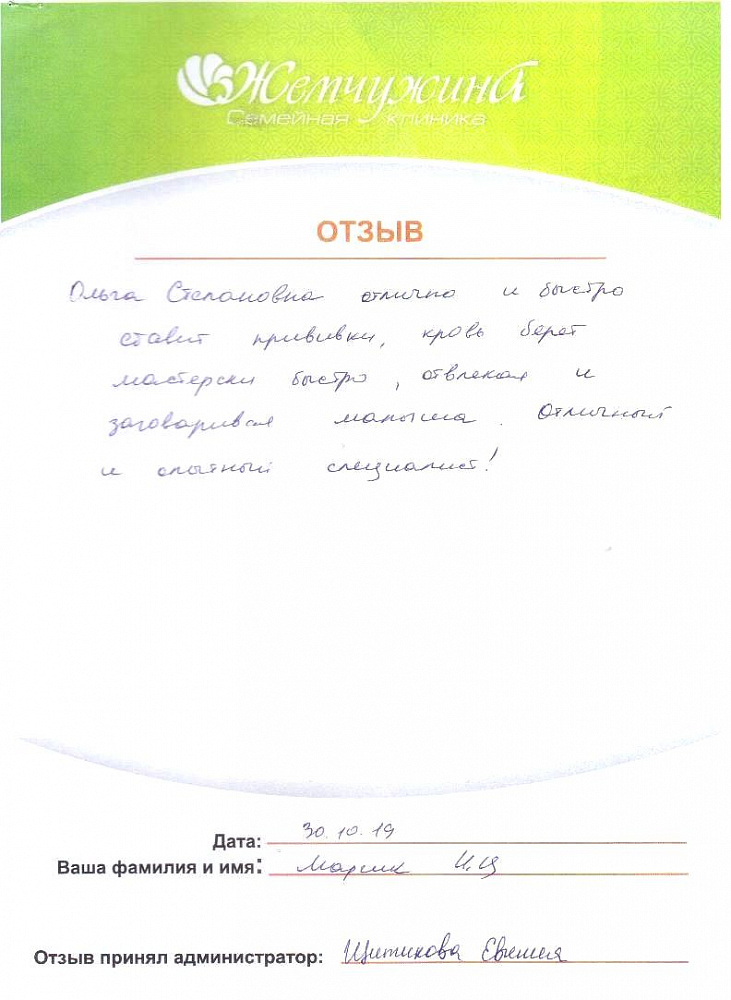 Жемчужина
Семейная клиника
ОТЗЫВ
Ольга Степановна отлично и быстро
ставит прививки, кровь берет
мастерски быстро, отвлекая и
заговаривая малыша. Отличный
и опытный специалист!
Дата: 30.10.19
Ваша фамилия и имя:
Отзыв принял администратор: Щитикова